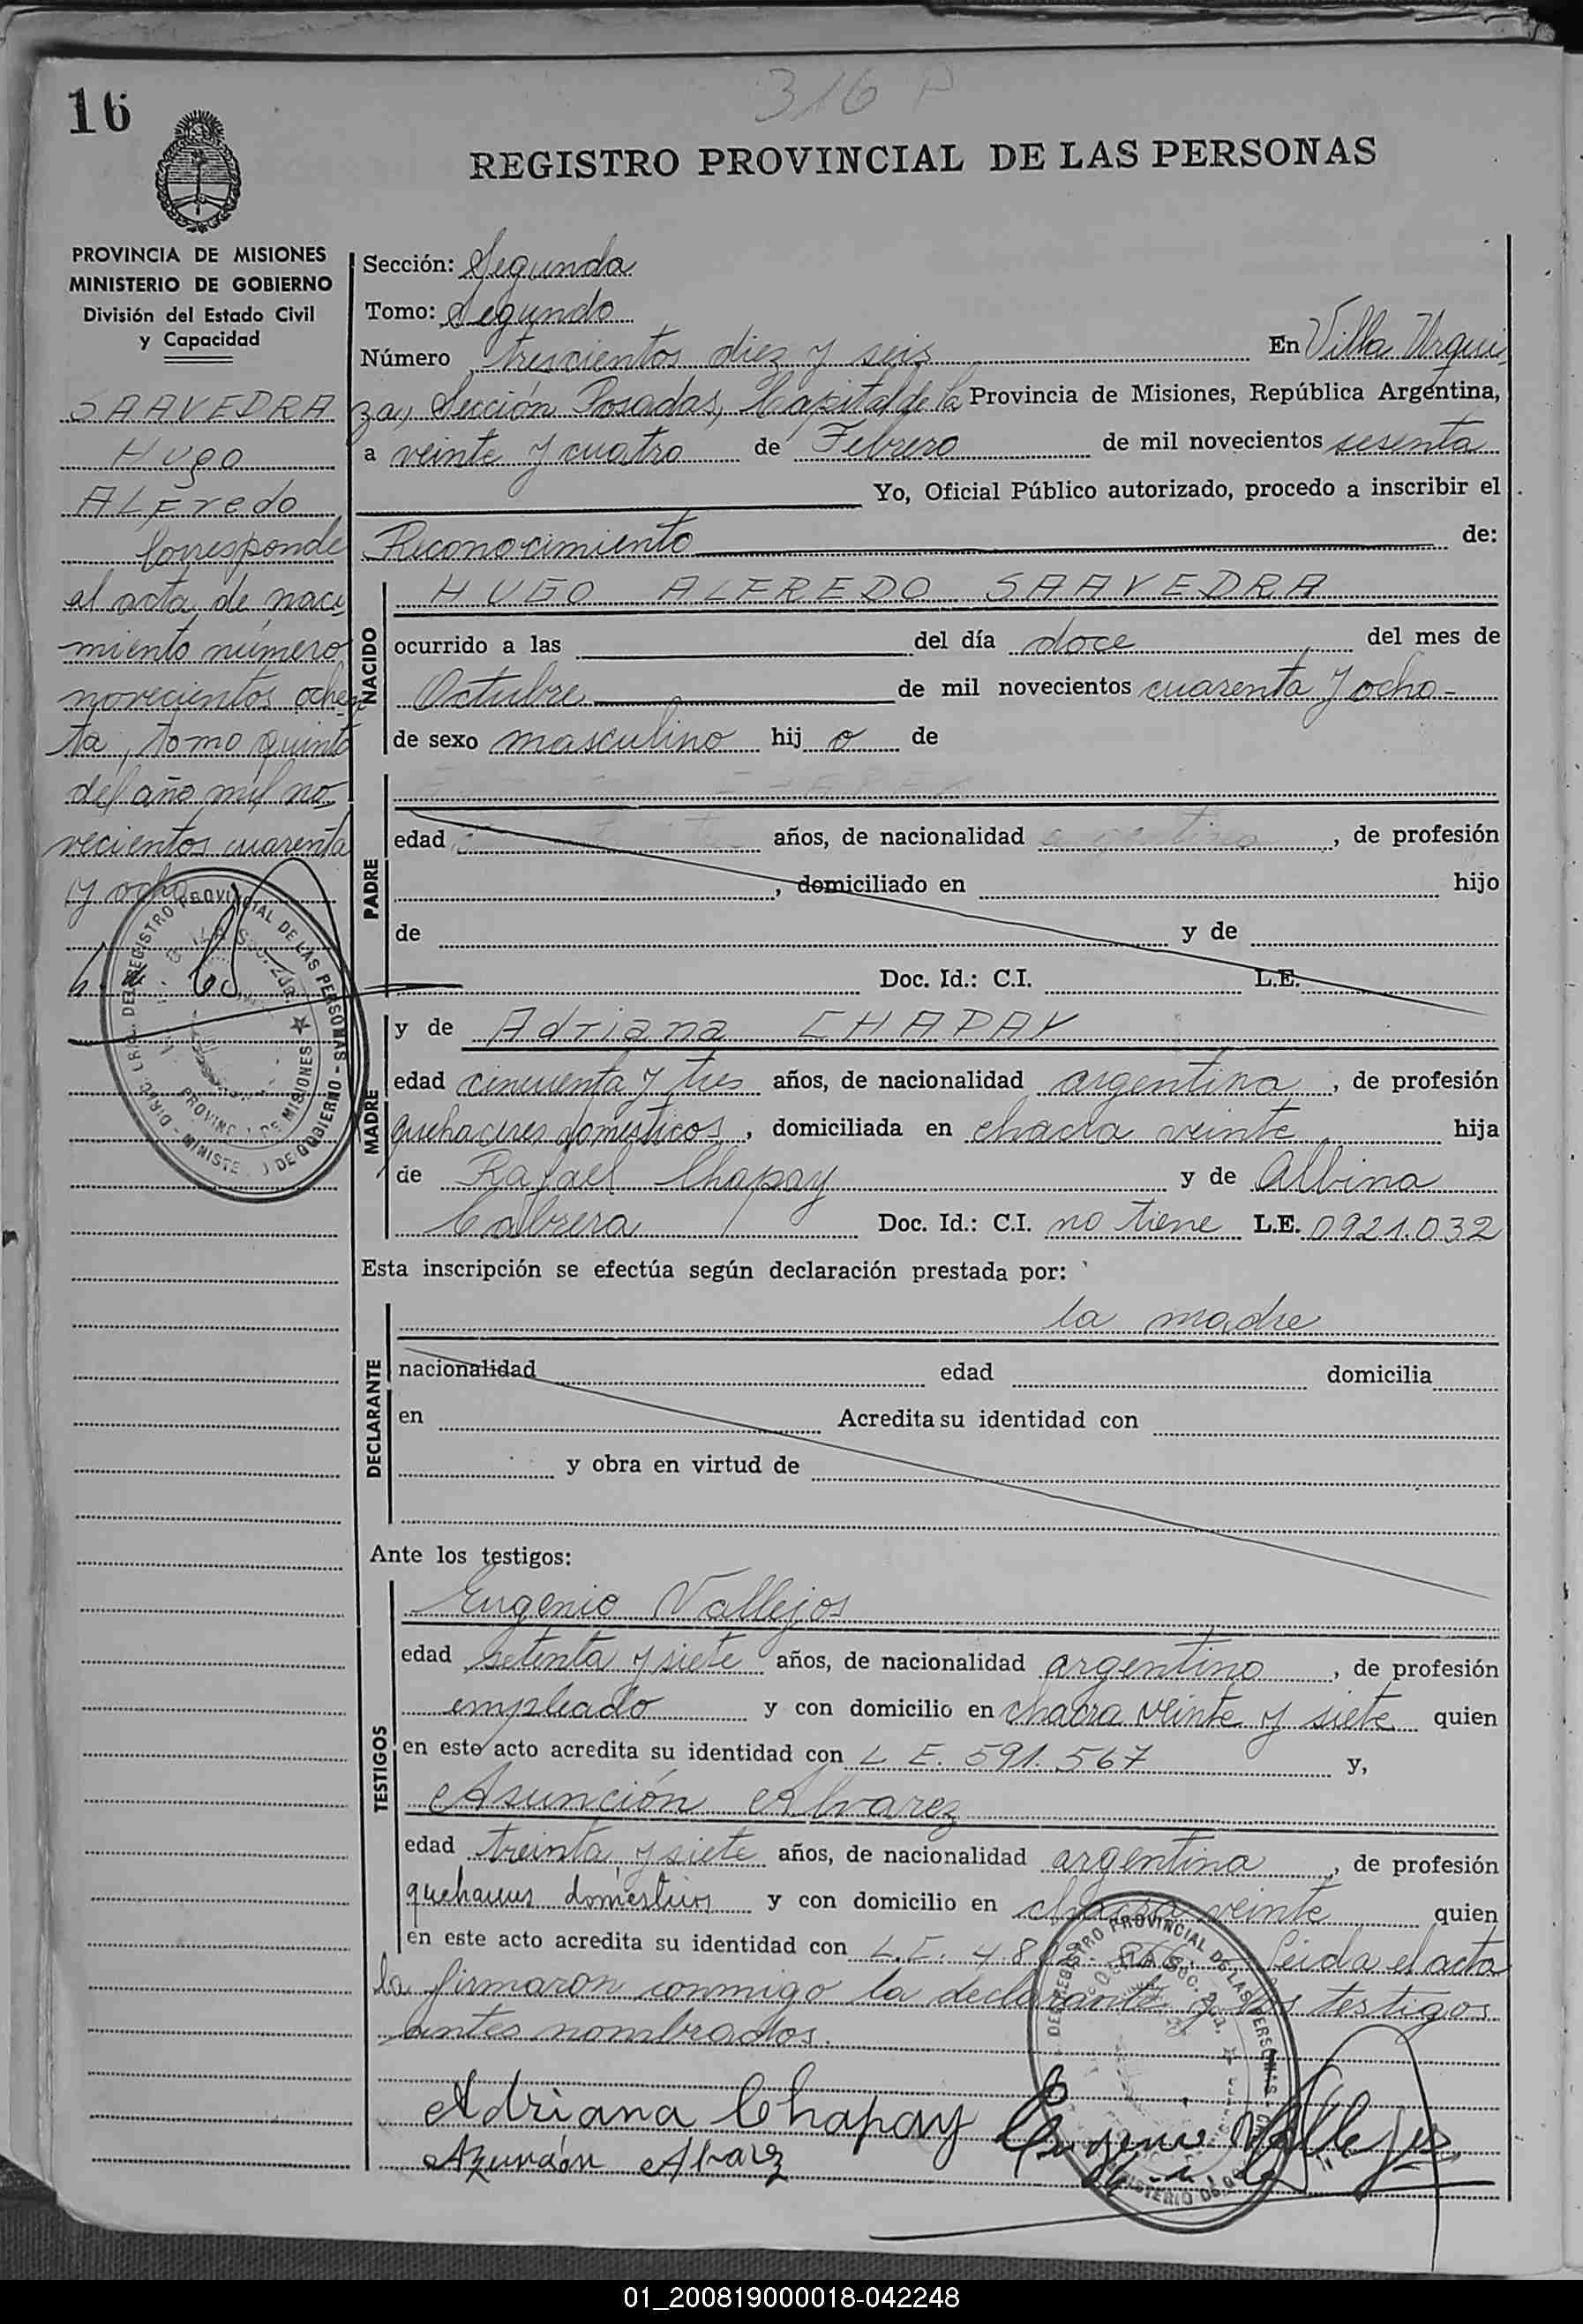 316 P
16
REGISTRO PROVINCIAL DE LAS PERSONAS
PROVINCIA DE MISIONES
MINISTERIO DE GOBIERNO
División del Estado Civil
y Capacidad
SAAVEDRA
Hugo
ALFredo
Corresponde
al acta de naci
miento número
novecientos ochen
ta, tomo quinto
del año mil no
vecientos cuarenta
y ocho
Sección: Segunda
Tomo: Segundo
Número trescientos diez y seis En Villa Urqui
za, Sección Posadas, Capital de la Provincia de Misiones, República Argentina,
a veinte y cuatro de Febrero de mil novecientos sesenta
Yo, Oficial Público autorizado, procedo a inscribir el
Reconocimiento de:
NACIDO
HUGO ALFREDO SAAVEDRA
ocurrido a las del día doce del mes de
Octubre de mil novecientos cuarenta y ocho-
de sexo masculino hij o de
PADRE
edad años, de nacionalidad argentina, de profesión
, domiciliado en hijo
de y de
Doc. Id.: C.I. L.E.
MADRE
y de Adriana CHAPAY
edad cincuenta y tres años, de nacionalidad argentina, de profesión
quehaceres domésticos, domiciliada en chacra veinte hija
de Rafael Chapay y de Albina
Cabrera Doc. Id.: C.I. no tiene L.E. 0921.032
Esta inscripción se efectúa según declaración prestada por:
DECLARANTE
la madre
nacionalidad edad domicilia
en Acredita su identidad con
y obra en virtud de
Ante los testigos:
TESTIGOS
Eugenio Vallejos
edad setenta y siete años, de nacionalidad argentino, de profesión
empleado y con domicilio en chacra veinte y siete quien
en este acto acredita su identidad con L.E. 591.567 y,
Asunción Alvarez
edad treinta y siete años, de nacionalidad argentina, de profesión
quehaceres domésticos y con domicilio en chacra veinte quien
en este acto acredita su identidad con L.E. 4.8 Leida el acta
la firmaron conmigo la declarante y los testigos
antes nombrados.
Adriana Chapay Eugenio Vallejos
Azunción Alvarez
DIREC. GRAL. DEL REGISTRO PROVINCIAL DE LAS PERSONAS - MINISTERIO DE GOBIERNO
PROVINCIA DE MISIONES
DEL REGISTRO PROVINCIAL DE LAS PERSONAS
MINISTERIO DE GO
01_200819000018-042248